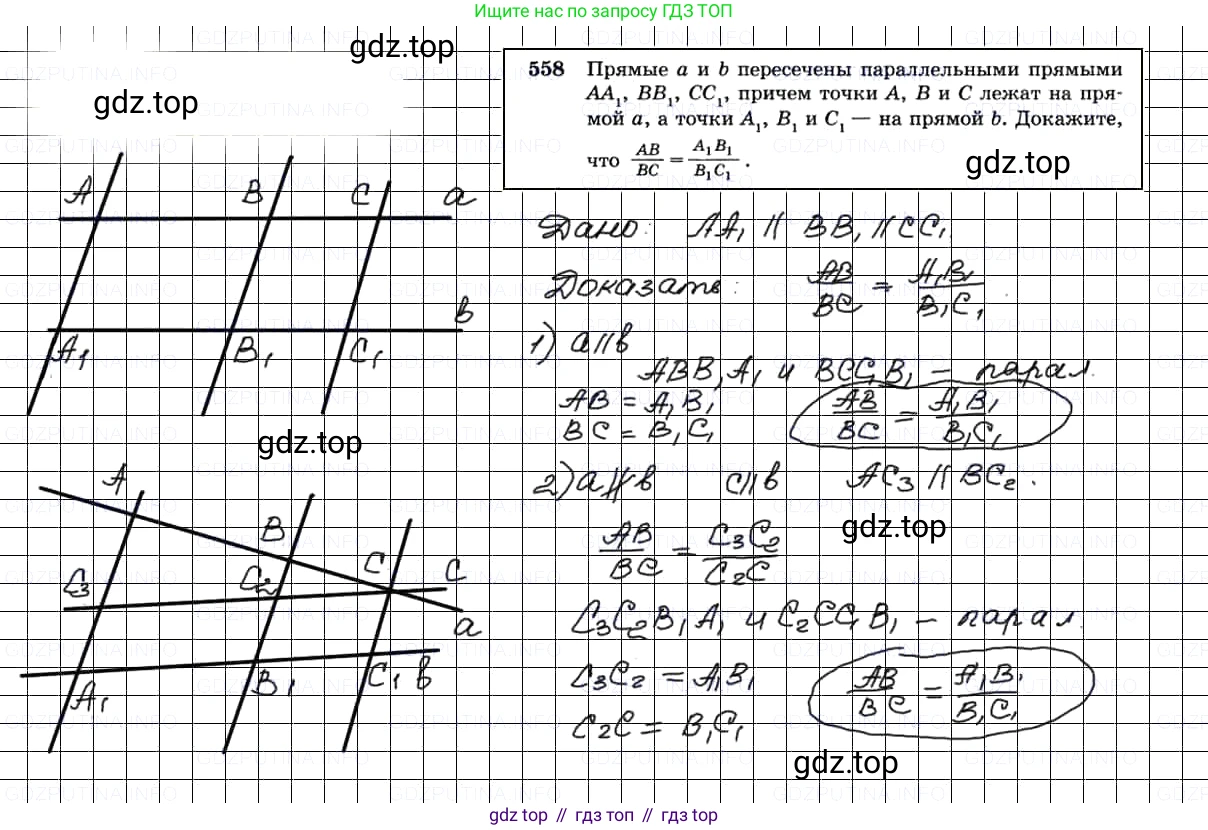 Ищите нас по запросу ГДЗ ТОП
gdz.top
gdz.top
558 Прямые a и b пересечены параллельными прямыми
AA₁, BB₁, CC₁, причем точки A, B и C лежат на пря-
мой a, а точки A₁, B₁ и C₁ — на прямой b. Докажите,
что AB/BC = A₁B₁/B₁C₁.
gdz.top
A B C a
A₁ B₁ C₁ в
Дано: AA₁ || BB₁ || CC₁.
Доказать: AB/BC = A₁B₁/B₁C₁.
1) a||в
ABB₁A₁ и BCC₁B₁ – парал.
AB = A₁B₁
BC = B₁C₁
AB/BC = A₁B₁/B₁C₁
gdz.top
2) a∦в c||в AC₃ || BC₂.
gdz.top
AB/BC = C₃C₂/C₂C
C₃C₂B₁A₁ и C₂CC₁B₁ – парал.
C₃C₂ = A₁B₁
C₂C = B₁C₁
AB/BC = A₁B₁/B₁C₁
A B C c
C₃ C₂ a
A₁ B₁ C₁ в
gdz.top
gdz.top // гдз топ // гдз top